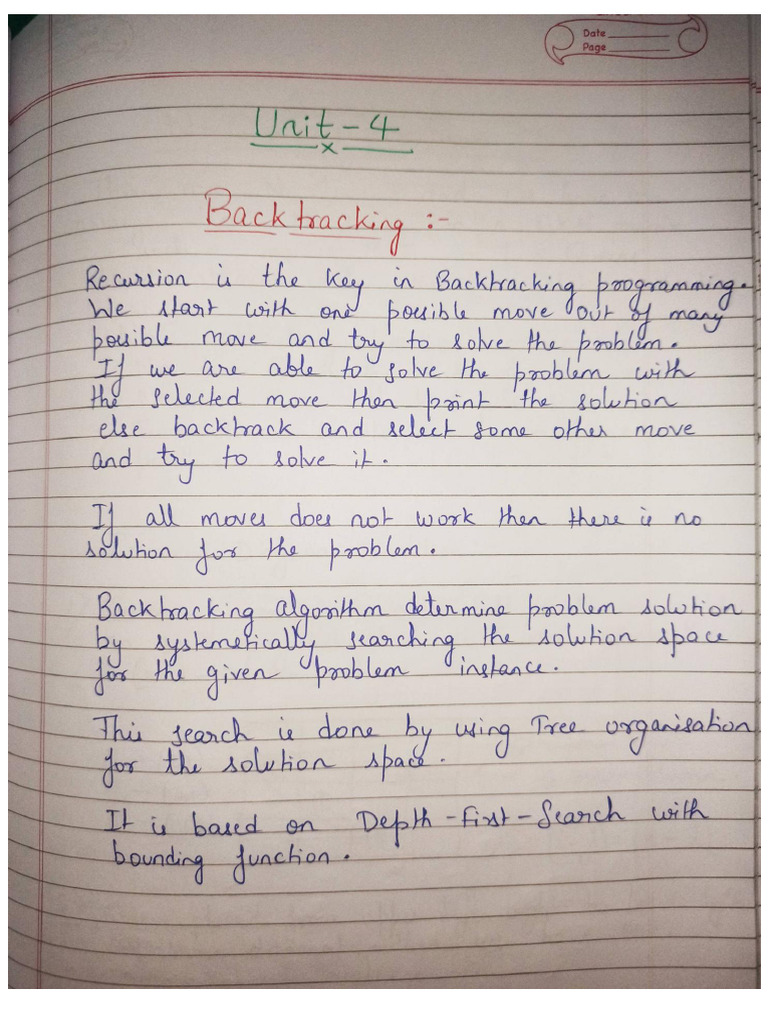 Date
Page
Unit - 4
x
Backtracking :-
Recursion is the key in Backtracking programming.
We start with one possible move out of many
possible move and try to solve the problem.
If we are able to solve the problem with
the selected move then print the solution
else backtrack and select some other move
and try to solve it.
If all moves does not work then there is no
solution for the problem.
Backtracking algorithm determine problem solution
by systemetically searching the solution space
for the given problem instance.
This search is done by using Tree organisation
for the solution space.
It is based on Depth - First - Search with
bounding function.